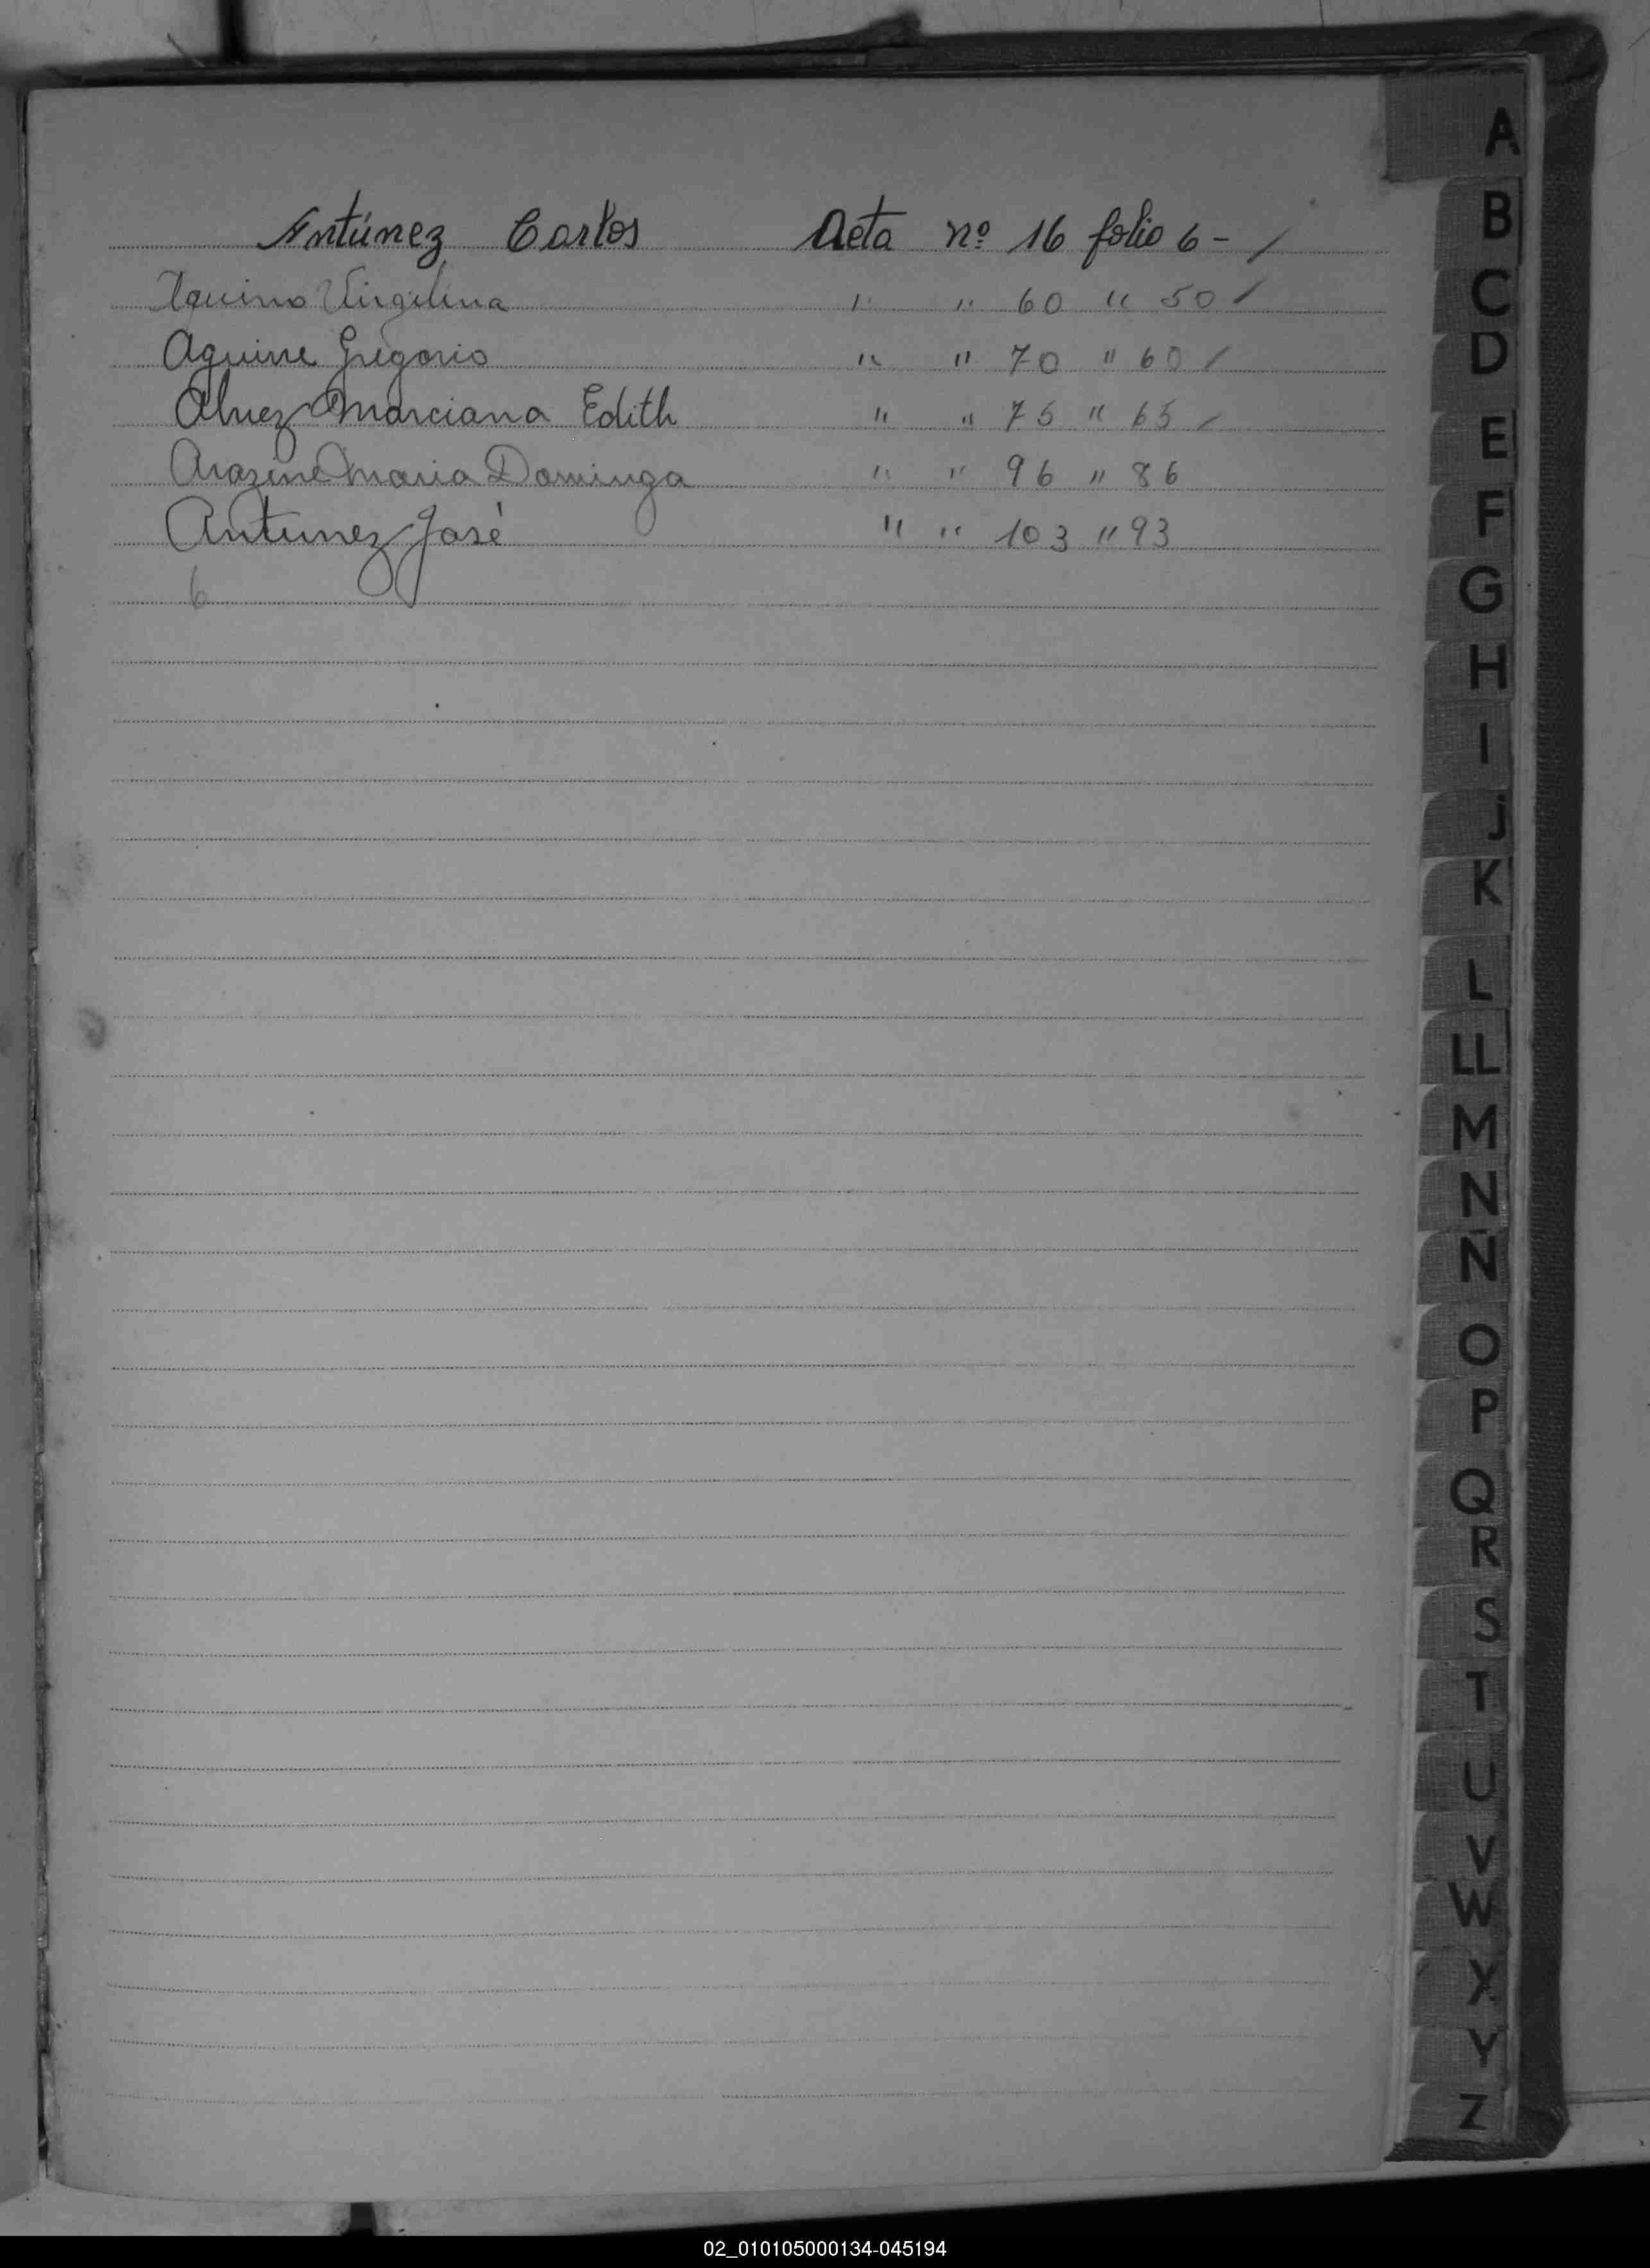 Antúnez Carlos Acta nº 16 folio 6 - /
Aquino Virgilina " " 60 " 50 /
Aguirre Gregorio " " 70 " 60 /
Alvez Marciana Edith " " 75 " 65 /
Maria Dominga " " 96 " 86
Antunez José " " 103 " 93
6
A
B
C
D
E
F
G
H
I
J
K
L
LL
M
N
Ñ
O
P
Q
R
S
T
U
V
W
X
Y
Z
02_010105000134-045194